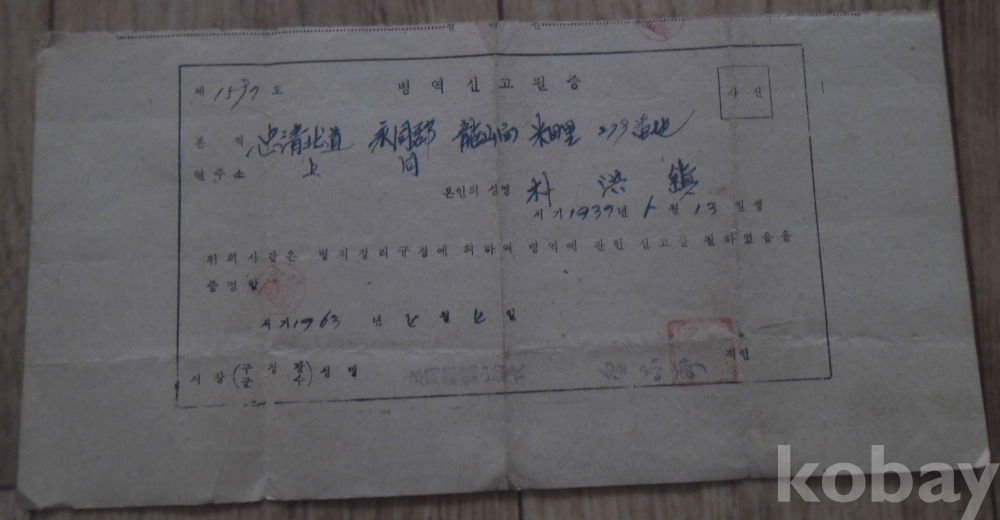 제 1597 호 병역신고필증 사진
본적 忠清北道 永同郡 龍山面 米田里
현주소 上 同
본인의 성명 朴 洪 鎭
서기 1937년 월 13일생
위의 사람은 병적정리규정에 의하여 병역에 관한 신고를 필하였음을
증명함
서기 1963년 월 일
시장 (구청장 군수) 성명 직인
kobay